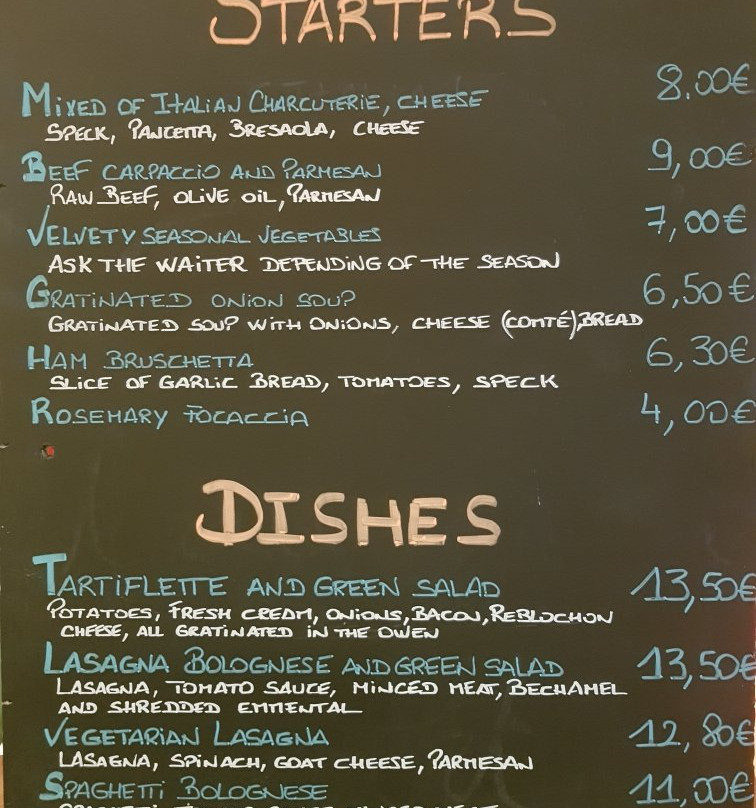 STARTERS
MIXED OF ITALIAN CHARCUTERIE, CHEESE 8.00€
SPECK, PANCETTA, BRESAOLA, CHEESE
BEEF CARPACCIO AND PARMESAN 9,00€
RAW BEEF, OLIVE OIL, PARMESAN
VELVETY SEASONAL VEGETABLES 7,00€
ASK THE WAITER DEPENDING OF THE SEASON
GRATINATED ONION SOUP 6,50€
GRATINATED SOUP WITH ONIONS, CHEESE (COMTÉ), BREAD
HAM BRUSCHETTA 6,30€
SLICE OF GARLIC BREAD, TOMATOES, SPECK
ROSEMARY FOCACCIA 4,00€
DISHES
TARTIFLETTE AND GREEN SALAD 13,50€
POTATOES, FRESH CREAM, ONIONS, BACON, REBLOCHON
CHEESE, ALL GRATINATED IN THE OWEN
LASAGNA BOLOGNESE AND GREEN SALAD 13,50€
LASAGNA, TOMATO SAUCE, MINCED MEAT, BECHAMEL
AND SHREDDED EMMENTAL
VEGETARIAN LASAGNA 12,80€
LASAGNA, SPINACH, GOAT CHEESE, PARMESAN
SPAGHETTI BOLOGNESE 11,00€